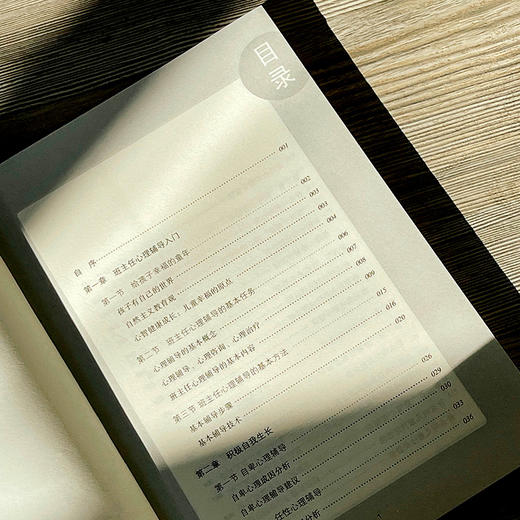 目录
自 序 001
第一章 班主任心理辅导入门
第一节 给孩子幸福的童年 002
孩子有自己的世界 003
自然主义教育观 003
心智健康成长：儿童幸福的原点 004
第二节 班主任心理辅导的基本任务 007
心理辅导的基本概念 008
心理辅导、心理咨询、心理治疗 009
班主任心理辅导的基本内容 015
第三节 班主任心理辅导的基本方法 016
基本辅导步骤 020
基本辅导技术 026
第二章 积极自我生长
第一节 自卑心理辅导 029
自卑心理成因分析 030
自卑心理辅导建议 033
任性心理辅导 036
分析